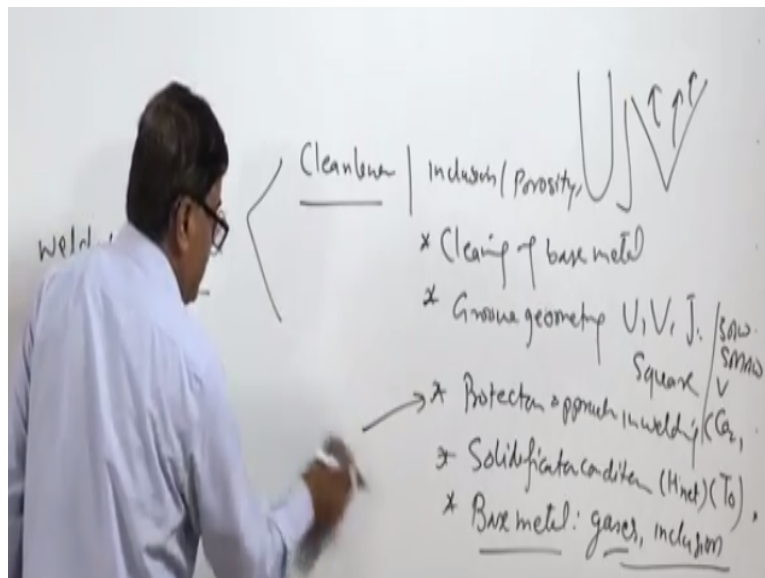 Weld
Cleanliness | Inclusion / Porosity,
* Cleaning of base metal
* Groove geometry U, V, J, / SAW
Square SMAW
* Protection approach in welding (CO2,
* Solidification condition (Hnet) (T0),
* Base metal: gases, inclusion